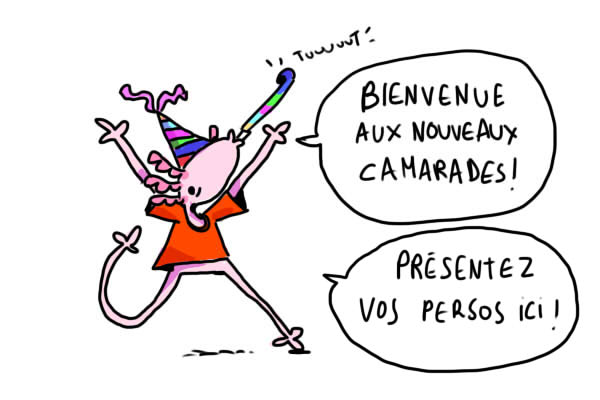 TUUUUUT!
BIENVENUE
AUX NOUVEAUX
CAMARADES!
PRÉSENTEZ
VOS PERSOS ICI!